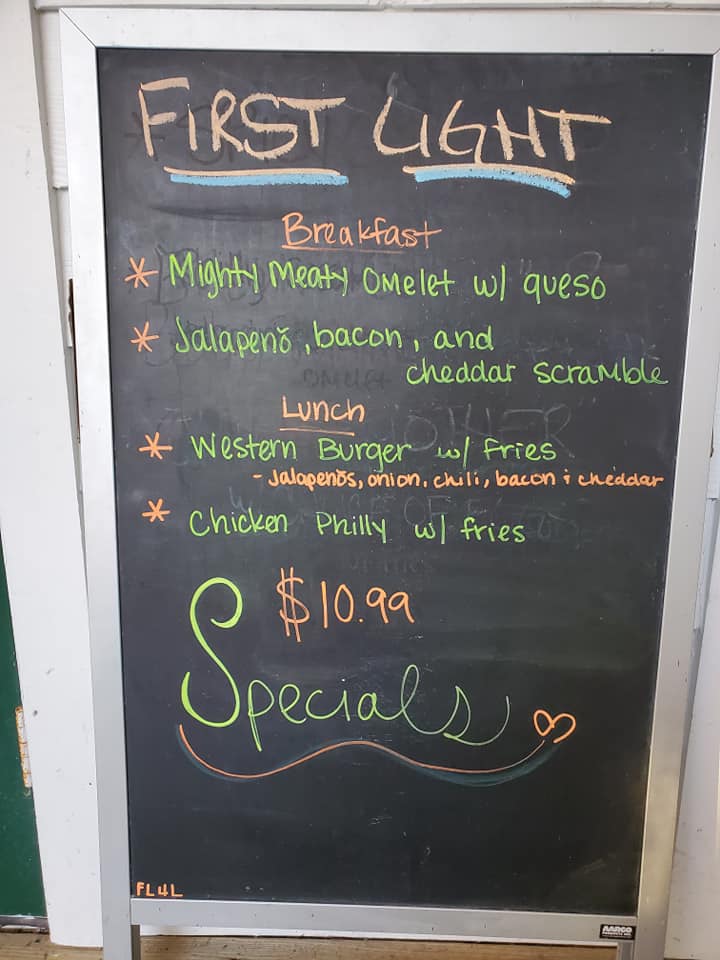 FIRST LIGHT
Breakfast
* Mighty Meaty Omelet w/ queso
* Jalapenõ, bacon, and
cheddar scramble
Lunch
* Western Burger w/ fries
- Jalapenõs, onion, chili, bacon & cheddar
* Chicken Philly w/ fries
$10.99
Specials
FL4L
AARCO